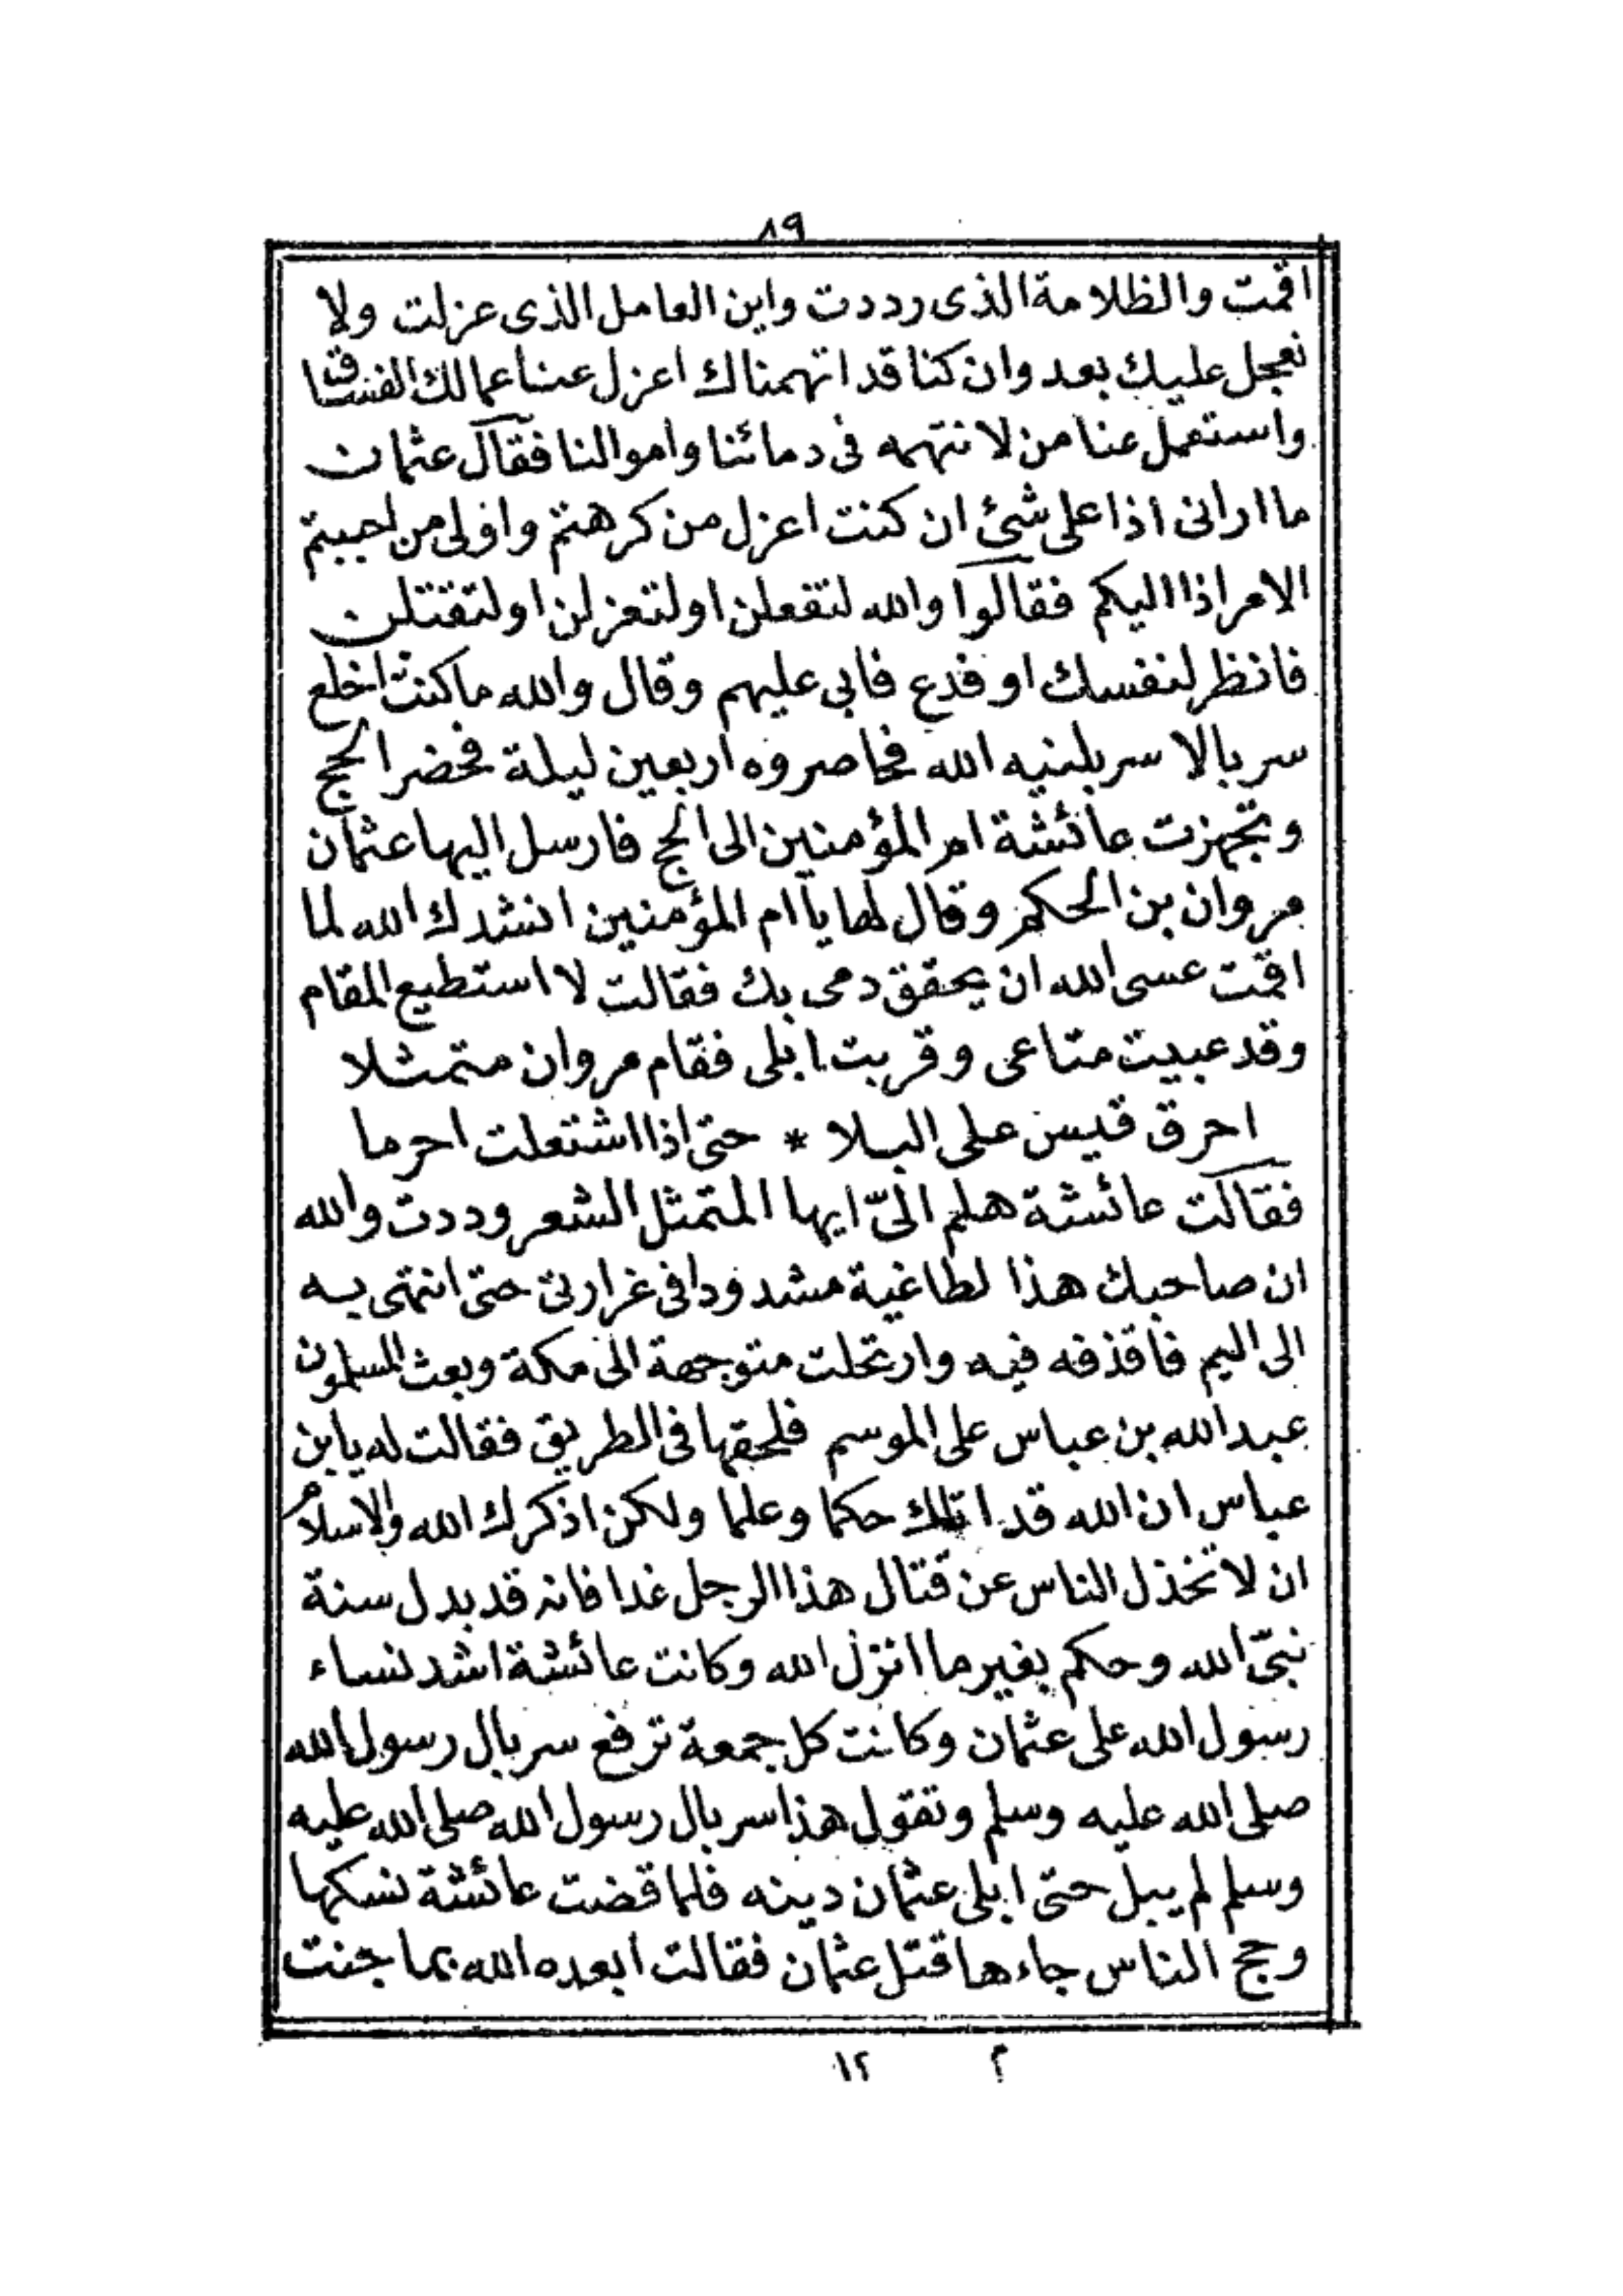 ٨٩
اقمت والظلامة الذى رددت واين العامل الذى عزلت ولا
نعجل عليك بعد وان كنا قد اتهمناك اعزل عنا عمالك الفساق
واستعمل عنا من لا نتهمه فى دمائنا واموالنا فقال عثمان
ما ارانى اذا على شئ ان كنت اعزل من كرهتم واولى من احببتم
الامر اذا اليكم فقالوا والله لتفعلن او لتعزلن او لتقتلن
فانظر لنفسك او فدع فابى عليهم وقال والله ما كنت اخلع
سربالا سربلنيه الله فحاصروه اربعين ليلة فحضر الحج
وتجهزت عائشة ام المؤمنين الى الحج فارسل اليها عثمان
مروان بن الحكم وقال لها يا ام المؤمنين انشدك الله لما
اقمت عسى الله ان يحقق دمى بك فقالت لا استطيع المقام
وقد عبيت متاعى وقربت ابلى فقام مروان متمثلا
احرق قيس على البلا * حتى اذا اشتعلت احرما
فقالت عائشة هلم الىّ ايها المتمثل الشعر وددت والله
ان صاحبك هذا لطاغية مشدودا فى غرارتى حتى انتهى به
الى اليم فاقذفه فيه وارتحلت متوجهة الى مكة وبعث المسلمون
عبد الله بن عباس على الموسم فلحقها فى الطريق فقالت له يا ابن
عباس ان الله قد اتاك حكما وعلما ولكن اذكرك الله والاسلام
ان لا تخذل الناس عن قتال هذا الرجل غدا فانه قد بدل سنة
نبىّ الله وحكم بغير ما انزل الله وكانت عائشة اشد نساء
رسول الله على عثمان وكانت كل جمعة ترفع سربال رسول الله
صلى الله عليه وسلم وتقول هذا سربال رسول الله صلى الله عليه
وسلم لم يبل حتى ابلى عثمان دينه فلما قضت عائشة نسكها
وحج الناس جاءها قتل عثمان فقالت ابعده الله بما جنت
م ١٢